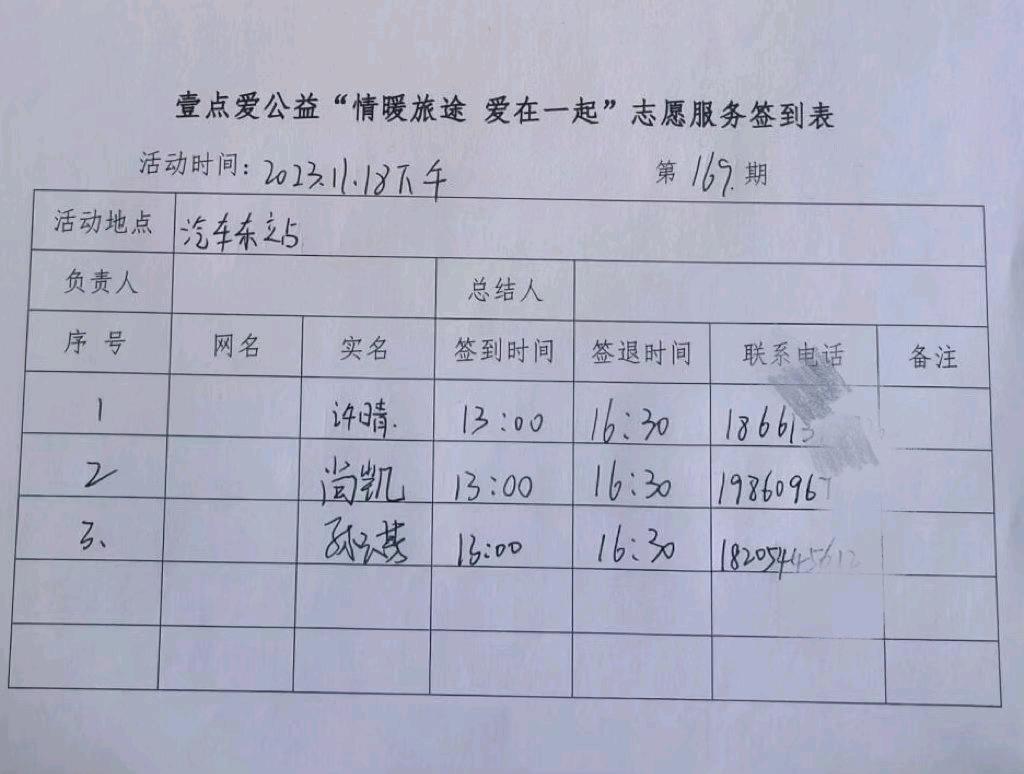 壹点爱公益“情暖旅途 爱在一起”志愿服务签到表
活动时间：2023.11.18下午 第169.期
活动地点 汽车东站
负责人 总结人
序 号 网名 实名 签到时间 签退时间 联系电话 备注
1 许晴. 13:00 16:30 18661
2 尚凯 13:00 16:30 1986096
3、 13:00 16:30 182054